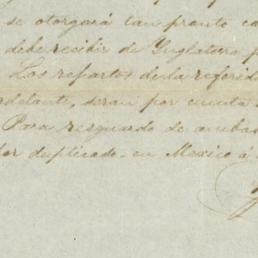 se otorgará tan pronto co
debe recibir de Ynglaterra p
Los repartos de la referid
adelante, seran por cuenta
Para resguardo de ambas
por duplicado en Mexico á